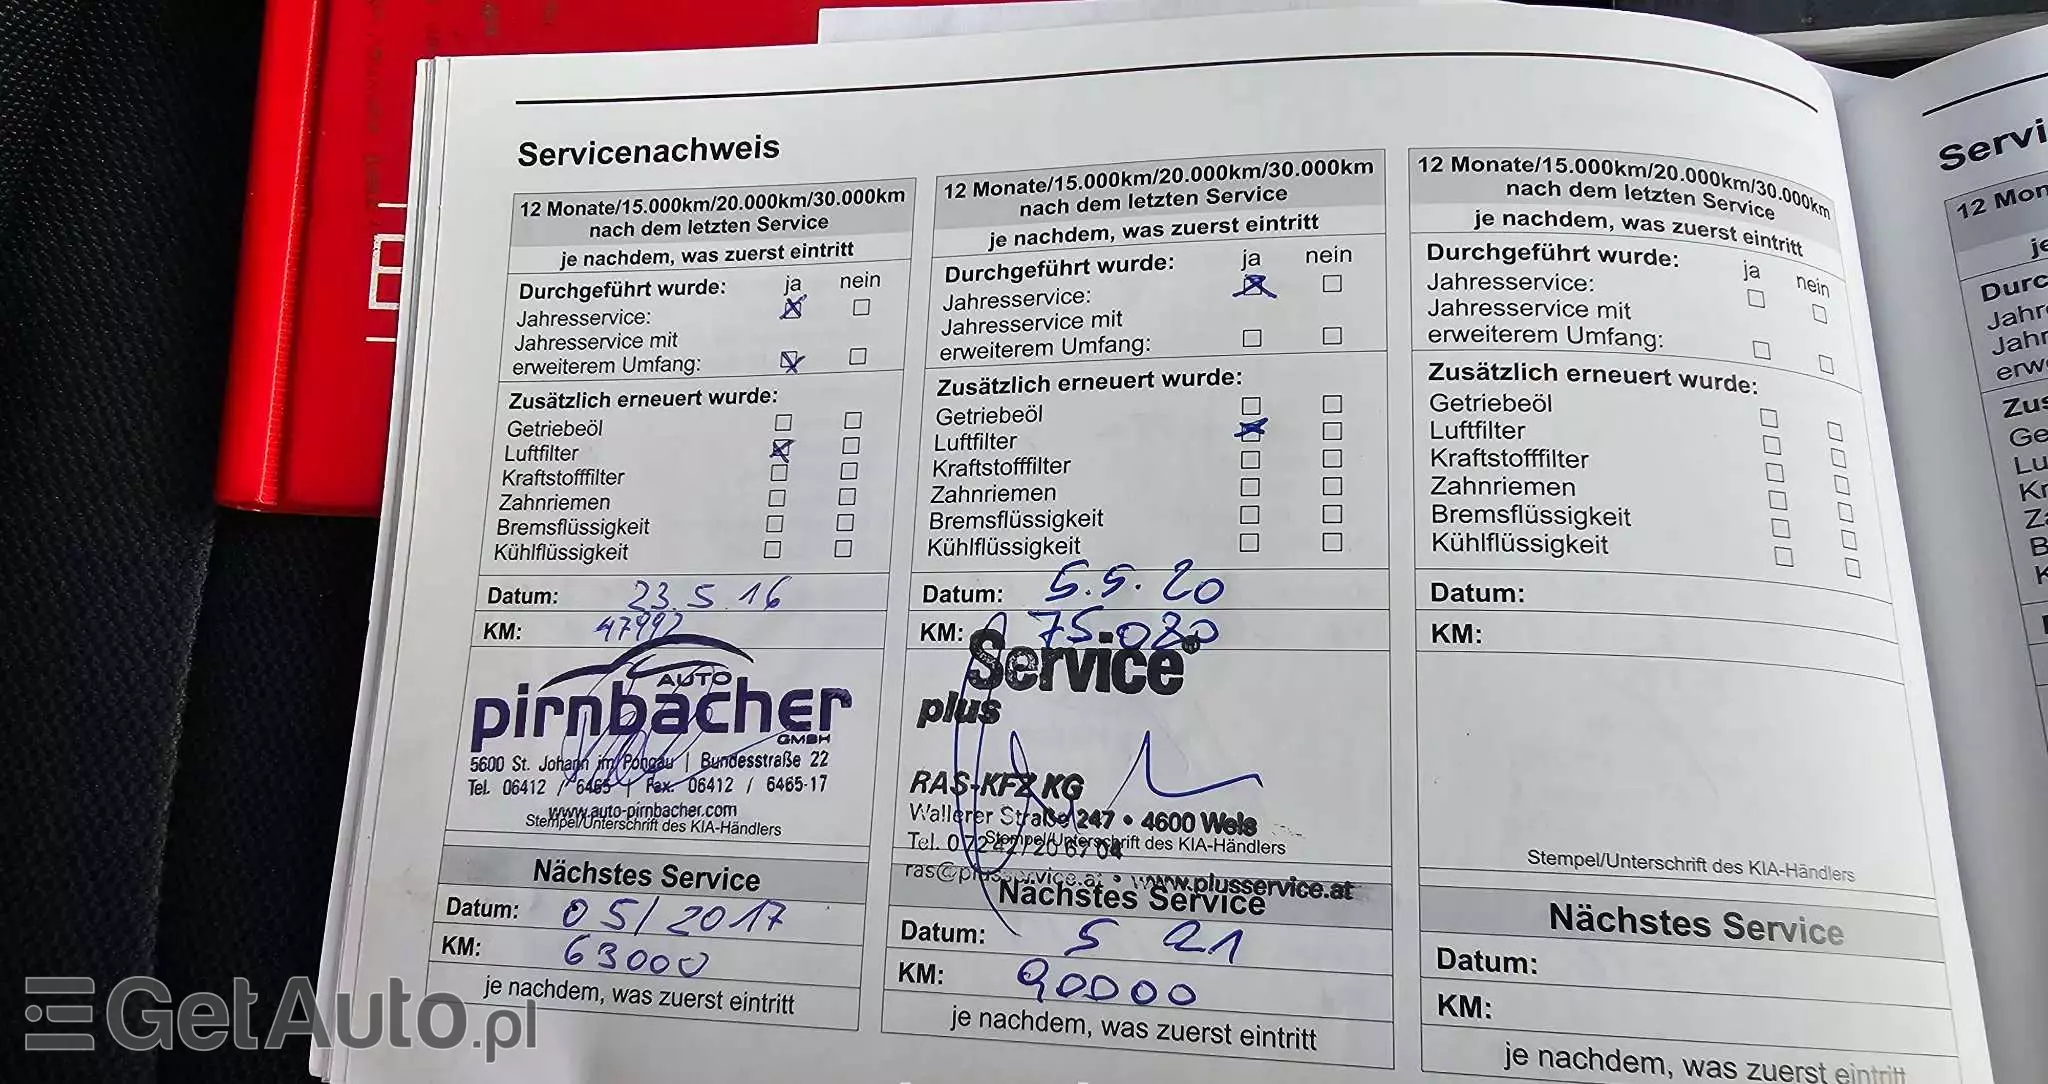 Servicenachweis
12 Monate/15.000km/20.000km/30.000km
nach dem letzten Service
je nachdem, was zuerst eintritt
Durchgeführt wurde: ja nein
Jahresservice:
Jahresservice mit
erweiterem Umfang:
Zusätzlich erneuert wurde:
Getriebeöl
Luftfilter
Kraftstofffilter
Zahnriemen
Bremsflüssigkeit
Kühlflüssigkeit
Datum: 23.5.16
KM: 47992
AUTO
pirnbacher
GMBH
5600 St. Johann im Pongau | Bundesstraße 22
Tel. 06412 / 6465 | Fax. 06412 / 6465-17
www.auto-pirnbacher.com
Stempel/Unterschrift des KIA-Händlers
Nächstes Service
Datum: 05/2017
KM: 63000
je nachdem, was zuerst eintritt
12 Monate/15.000km/20.000km/30.000km
nach dem letzten Service
je nachdem, was zuerst eintritt
Durchgeführt wurde: ja nein
Jahresservice:
Jahresservice mit
erweiterem Umfang:
Zusätzlich erneuert wurde:
Getriebeöl
Luftfilter
Kraftstofffilter
Zahnriemen
Bremsflüssigkeit
Kühlflüssigkeit
Datum: 5.5.20
KM: 75.020
Service
plus
RAS-KFZ KG
Wallerer Straße 247 • 4600 Wels
Stempel/Unterschrift des KIA-Händlers
Tel.
ras@plusservice.at • www.plusservice.at
Nächstes Service
Datum: 5 21
KM: 90000
je nachdem, was zuerst eintritt
12 Monate/15.000km/20.000km/30.000km
nach dem letzten Service
je nachdem, was zuerst eintritt
Durchgeführt wurde: ja nein
Jahresservice:
Jahresservice mit
erweiterem Umfang:
Zusätzlich erneuert wurde:
Getriebeöl
Luftfilter
Kraftstofffilter
Zahnriemen
Bremsflüssigkeit
Kühlflüssigkeit
Datum:
KM:
Stempel/Unterschrift des KIA-Händlers
Nächstes Service
Datum:
KM:
je nachdem, was zuerst eintritt
GetAuto.pl